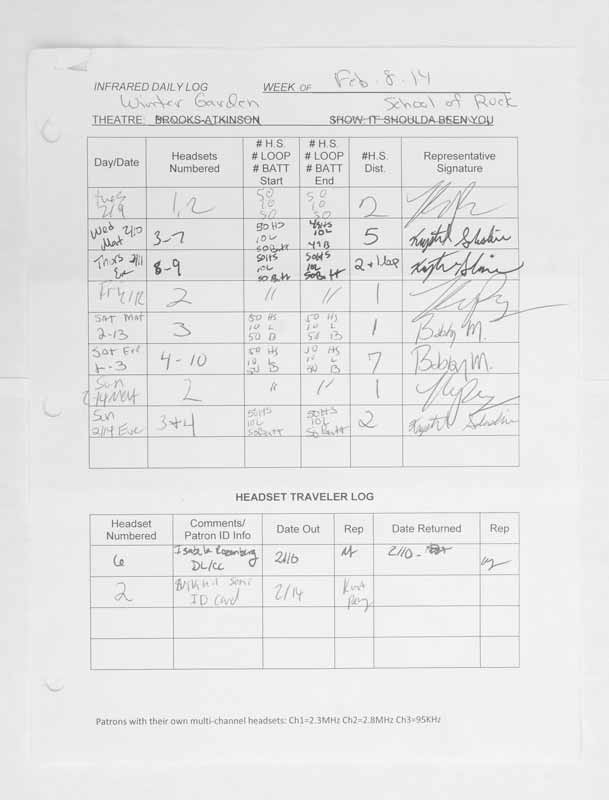 INFRARED DAILY LOG WEEK OF Feb. 8.14
Winter Garden School of Rock
THEATRE: BROOKS-ATKINSON SHOW: IT SHOULDA BEEN YOU
Day/Date Headsets Numbered # H.S. # LOOP # BATT Start # H.S. # LOOP # BATT End #H.S. Dist. Representative Signature
Tues 2/9 1,2 50 10 50 50 10 50 2
Wed 2/10 Mat 3-7 50 HS 10L 50 Batt 10L 5
Thurs 2/11 Eve 8-9 50HS 10L 50 Batt 50HS 10L 50 Batt 2
Fri 2/12 2 " " 1
SAT Mat 2-13 3 50 HS 10 L 50 B 50 HS 10 L 50 B 1 Bobby M.
SAT Eve 4-10 50 HS 10 L 50 B 50 HS 10 L 50 B 7 Bobby M.
Sun 2/14 Mat 2 " " 1
Sun 2/14 Eve 3+4 50HS 10L 50Batt 50HS 10L 50 Batt 2
HEADSET TRAVELER LOG
Headset Numbered Comments/ Patron ID Info Date Out Rep Date Returned Rep
6 DL/CC 2/10 2/10
2 ID Card 2/14
Patrons with their own multi-channel headsets: Ch1=2.3MHz Ch2=2.8MHz Ch3=95KHz